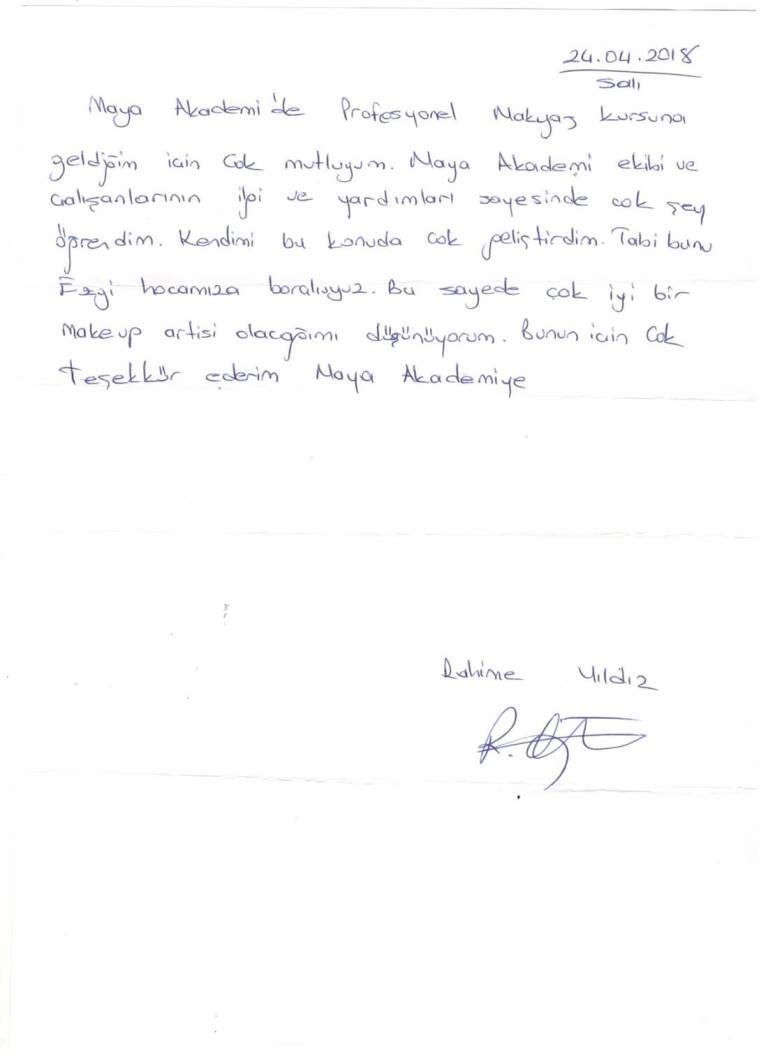 24.04.2018
Salı
Maya Akademi'de Profesyonel Makyaj kursuna
geldiğim icin Cok mutluyum. Maya Akademi ekibi ve
Calışanlarının ilgi ve yardımları sayesinde cok şey
öğrendim. Kendimi bu konuda cok geliştirdim. Tabi bunu
Ezgi hocamıza borcluyuz. Bu sayede çok iyi bir
Makeup artisi olacğımı düşünüyorum. Bunun icin Cok
teşekkür ederim Maya Akademiye
Rahime Yıldız